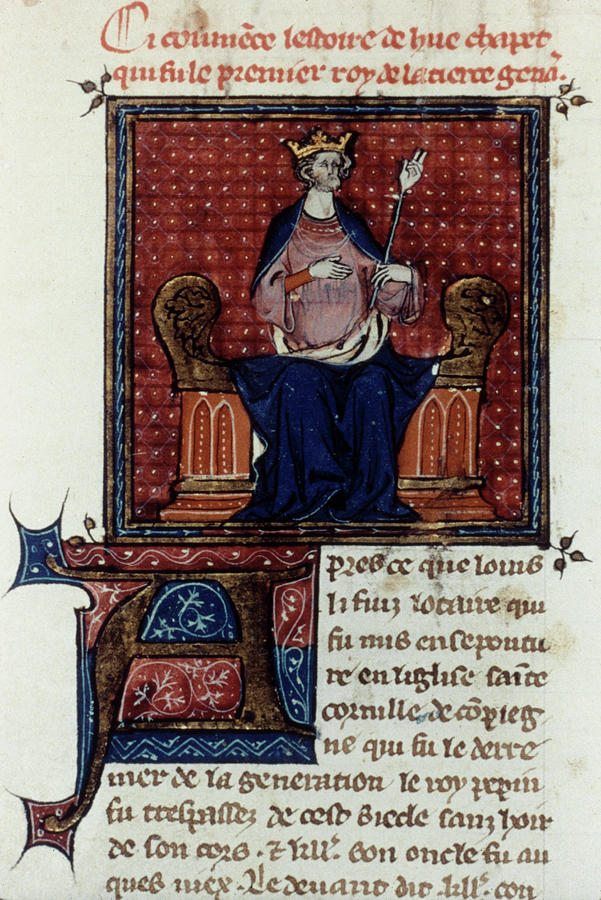 Ci coumēce lestoire de hue chapet
qui fu le premier roy de la tierce gena̅.
Apres ce que louis
li fiuz lotaire qui
fu mis en sepoutu
re en liglise saīte
cornille de cōpieg
ne qui fu le derre
nier de la generation le roy pepin
fu trespassez de cest siecle sanz hoir
de son cors. ⁊ kll'. son oncle fu au
ques niex. Le devant dit kll'. con